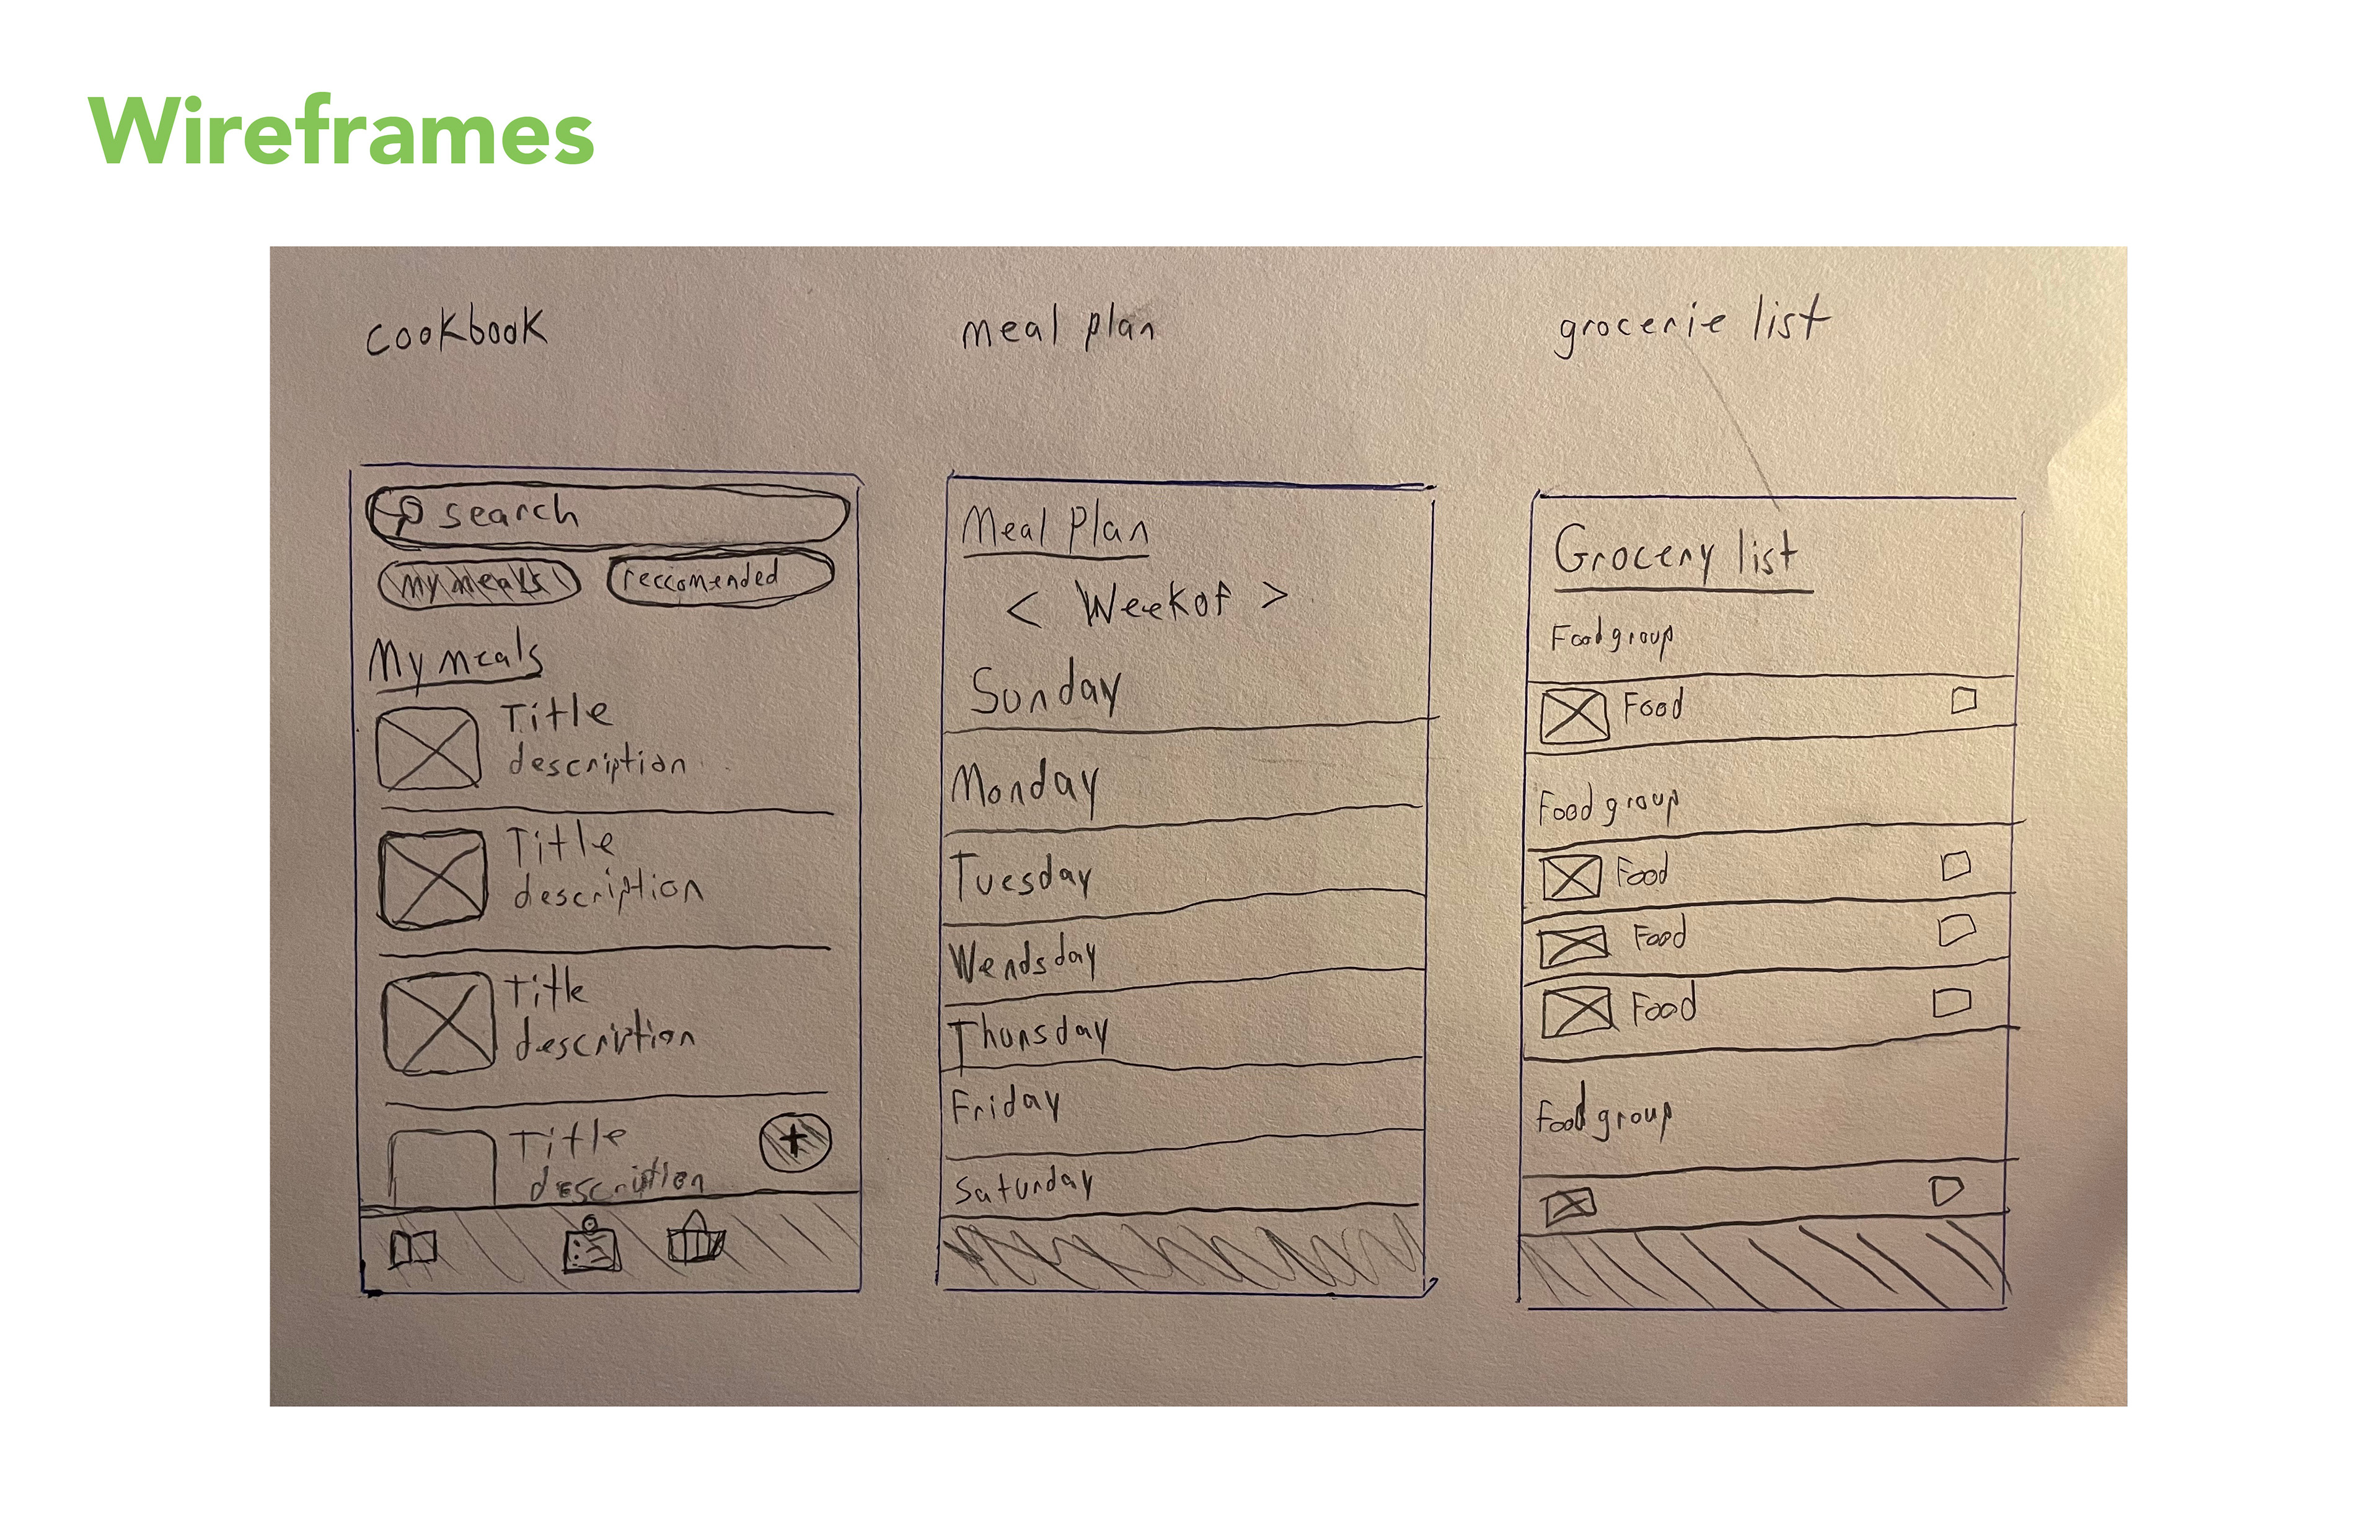 Wireframes
cookbook
meal plan
grocerie list
search
my meals
reccomended
My meals
Title
description
Title
description
Title
description
Title
description
Meal Plan
< Week of >
Sunday
Monday
Tuesday
Wendsday
Thursday
Friday
Saturday
Grocery list
Food group
Food
Food group
Food
Food
Food
Food group